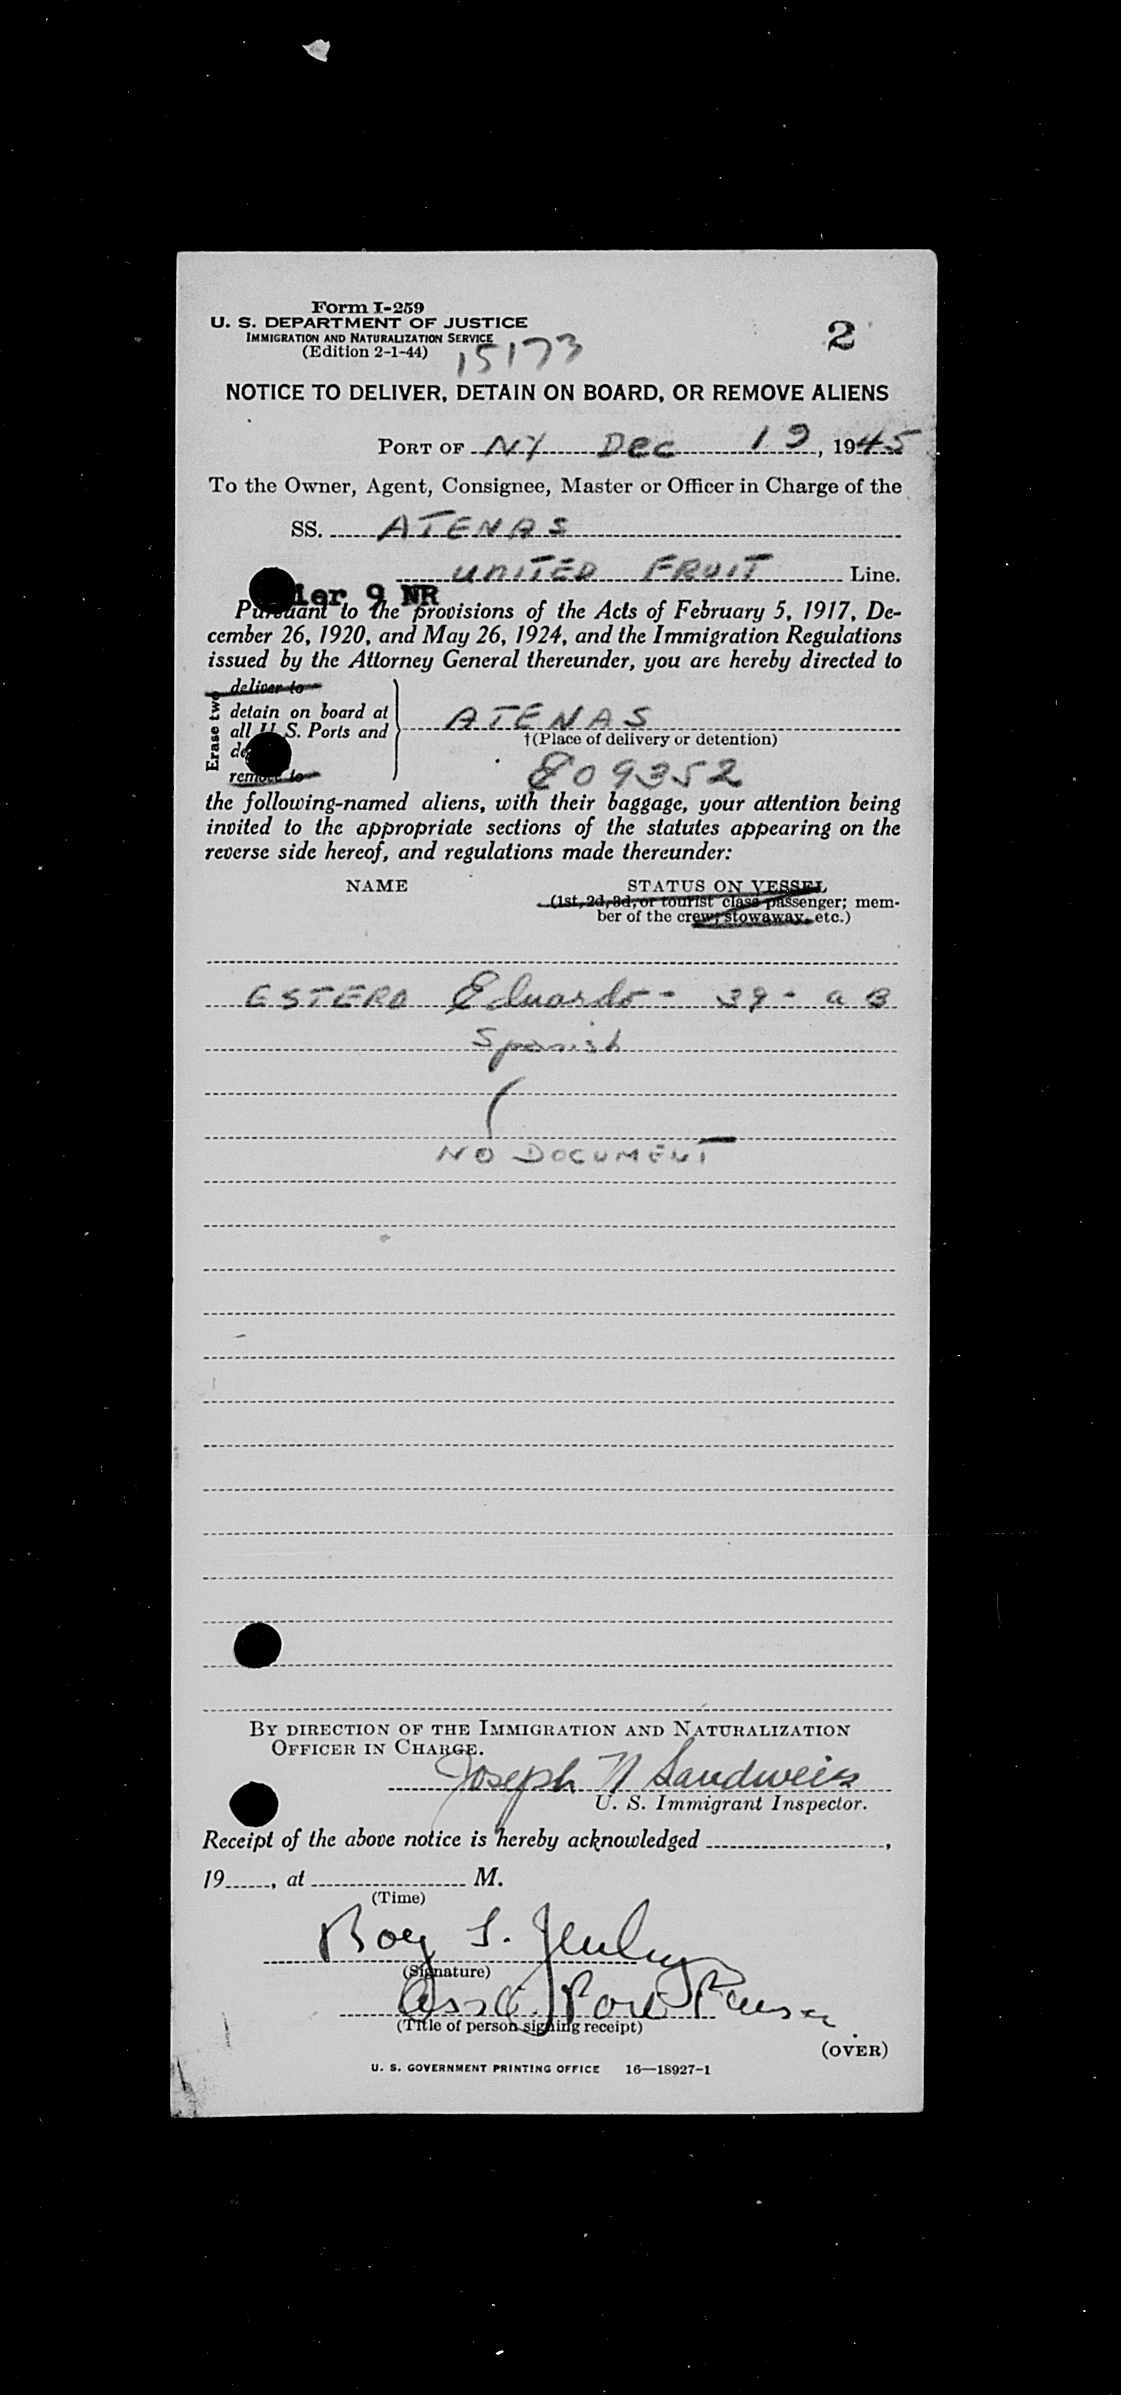 Form I-259
U. S. DEPARTMENT OF JUSTICE
IMMIGRATION AND NATURALIZATION SERVICE
(Edition 2-1-44)
15173
2
NOTICE TO DELIVER, DETAIN ON BOARD, OR REMOVE ALIENS
PORT OF NY Dec 19, 1945
To the Owner, Agent, Consignee, Master or Officer in Charge of the
SS. ATENAS
UNITED FRUIT Line.
ier 9 NR
Pursuant to the provisions of the Acts of February 5, 1917, De-
cember 26, 1920, and May 26, 1924, and the Immigration Regulations
issued by the Attorney General thereunder, you are hereby directed to
Erase two
deliver to
detain on board at
all U. S. Ports and
remove to
ATENAS
†(Place of delivery or detention)
809352
the following-named aliens, with their baggage, your attention being
invited to the appropriate sections of the statutes appearing on the
reverse side hereof, and regulations made thereunder:
NAME STATUS ON VESSEL
(1st, 2d, 3d, or tourist class passenger; mem-
ber of the crew, stowaway, etc.)
ESTERO Eduardo - 39 - a B
Spanish
(
NO DOCUMENT
BY DIRECTION OF THE IMMIGRATION AND NATURALIZATION
OFFICER IN CHARGE.
Joseph N Sandweiss
U. S. Immigrant Inspector.
Receipt of the above notice is hereby acknowledged ,
19 , at M.
(Time)
Roy S.
(Signature)
Asst. Port
(Title of person signing receipt)
(OVER)
U. S. GOVERNMENT PRINTING OFFICE 16—18927-1